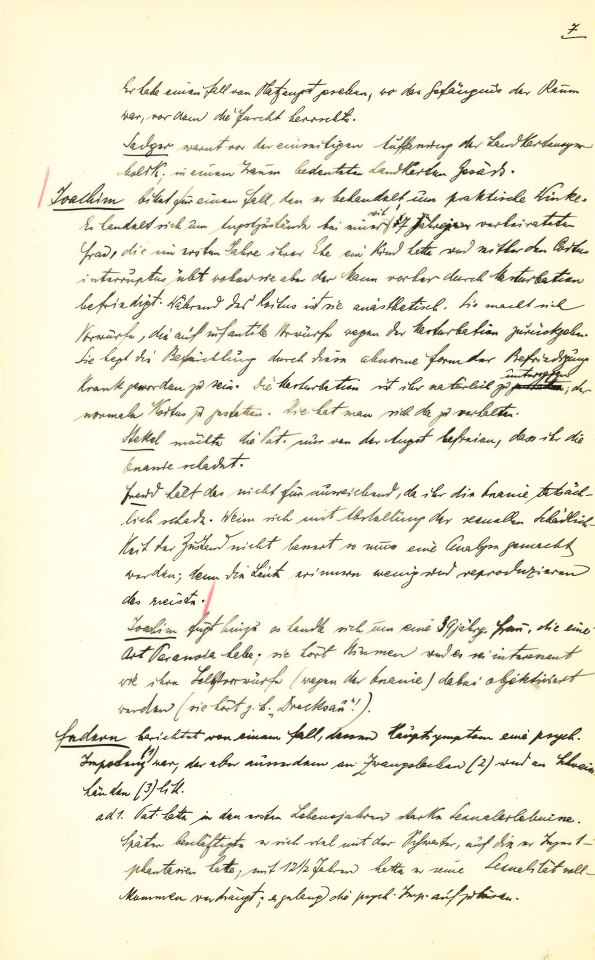 7
Er habe einen Fall von Platzangst gesehen, wo das Gefängnis der Raum
war, vor dem die Furcht herrschte.
Sadger warnt vor der einseitigen Auffassung der Landkartensym-
bolik; in einem Traum bedeuteten Landkarten Gesäss.
Joachim bittet für einen Fall, den er behandelt, um praktische Winke.
Es handelt sich um Angstzustände bei einer 27 jährigen verheirateten
Frau, die im ersten Jahre ihrer Ehe ein Kind hatte und seither den Coitus
interruptus übt wobei sie aber der Mann vorher durch Masturbation
befriedigt. Während des Coitus ist sie anästhetisch. Sie macht sich
Vorwürfe, die auf infantile Vorwürfe wegen der Masturbation zurückgehen.
Sie hegt die Befürchtung durch diese abnorme Form der Befriedigung
krank geworden zu sein. Die Masturbation ist ihr natürlich zu untersagen; der
normale Koitus zu gestatten. Wie hat man sich da zu verhalten.
Stekel möchte die Pat. nur von der Angst befreien, dass ihr die
Onanie schadet.
Freud hält das nicht für ausreichend, da ihr die Onanie tatsäch-
lich schade. Wenn sich mit Abstellung der sexuellen Schädlich-
keit der Zustand nicht bessert so muss eine Analyse gemacht
werden; denn die Leute erinnern wenig und reproduzieren
das meiste.
Joachim fügt hinzu es handle sich um eine 39 jähr. Frau, die eine
Art Paranoia habe; sie hört Stimmen und es sei interessant
wie ihre Selbstvorwürfe (wegen der Onanie) dabei objektiviert
werden (sie hört z.b. „Drecksau"!).
Federn berichtet von einem Fall, dessen Hauptsymptom eine psych.
Impotenz (1) war, der aber ausserdem an Zwangslachen (2) und an Schweiss-
händen (3) litt.
ad 1. Pat. hatte in den ersten Lebensjahren starke Sexualerlebnisse.
Später beschäftigte er sich viel mit der Schwester, auf die er Inzest-
phantasien hatte, mit 12½ Jahren hatte er seine Sexualität voll-
kommen verdrängt; es gelang die psych. Imp. aufzulösen.